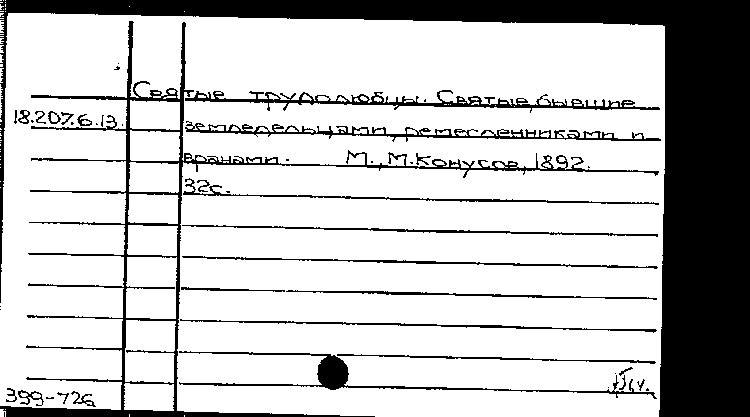 Святые трудолюбцы. Святые, бывшие
18.207.6.13. земледельцами, ремесленниками и
врачами. М., М. Конусов, 1892.
32с.
399-726